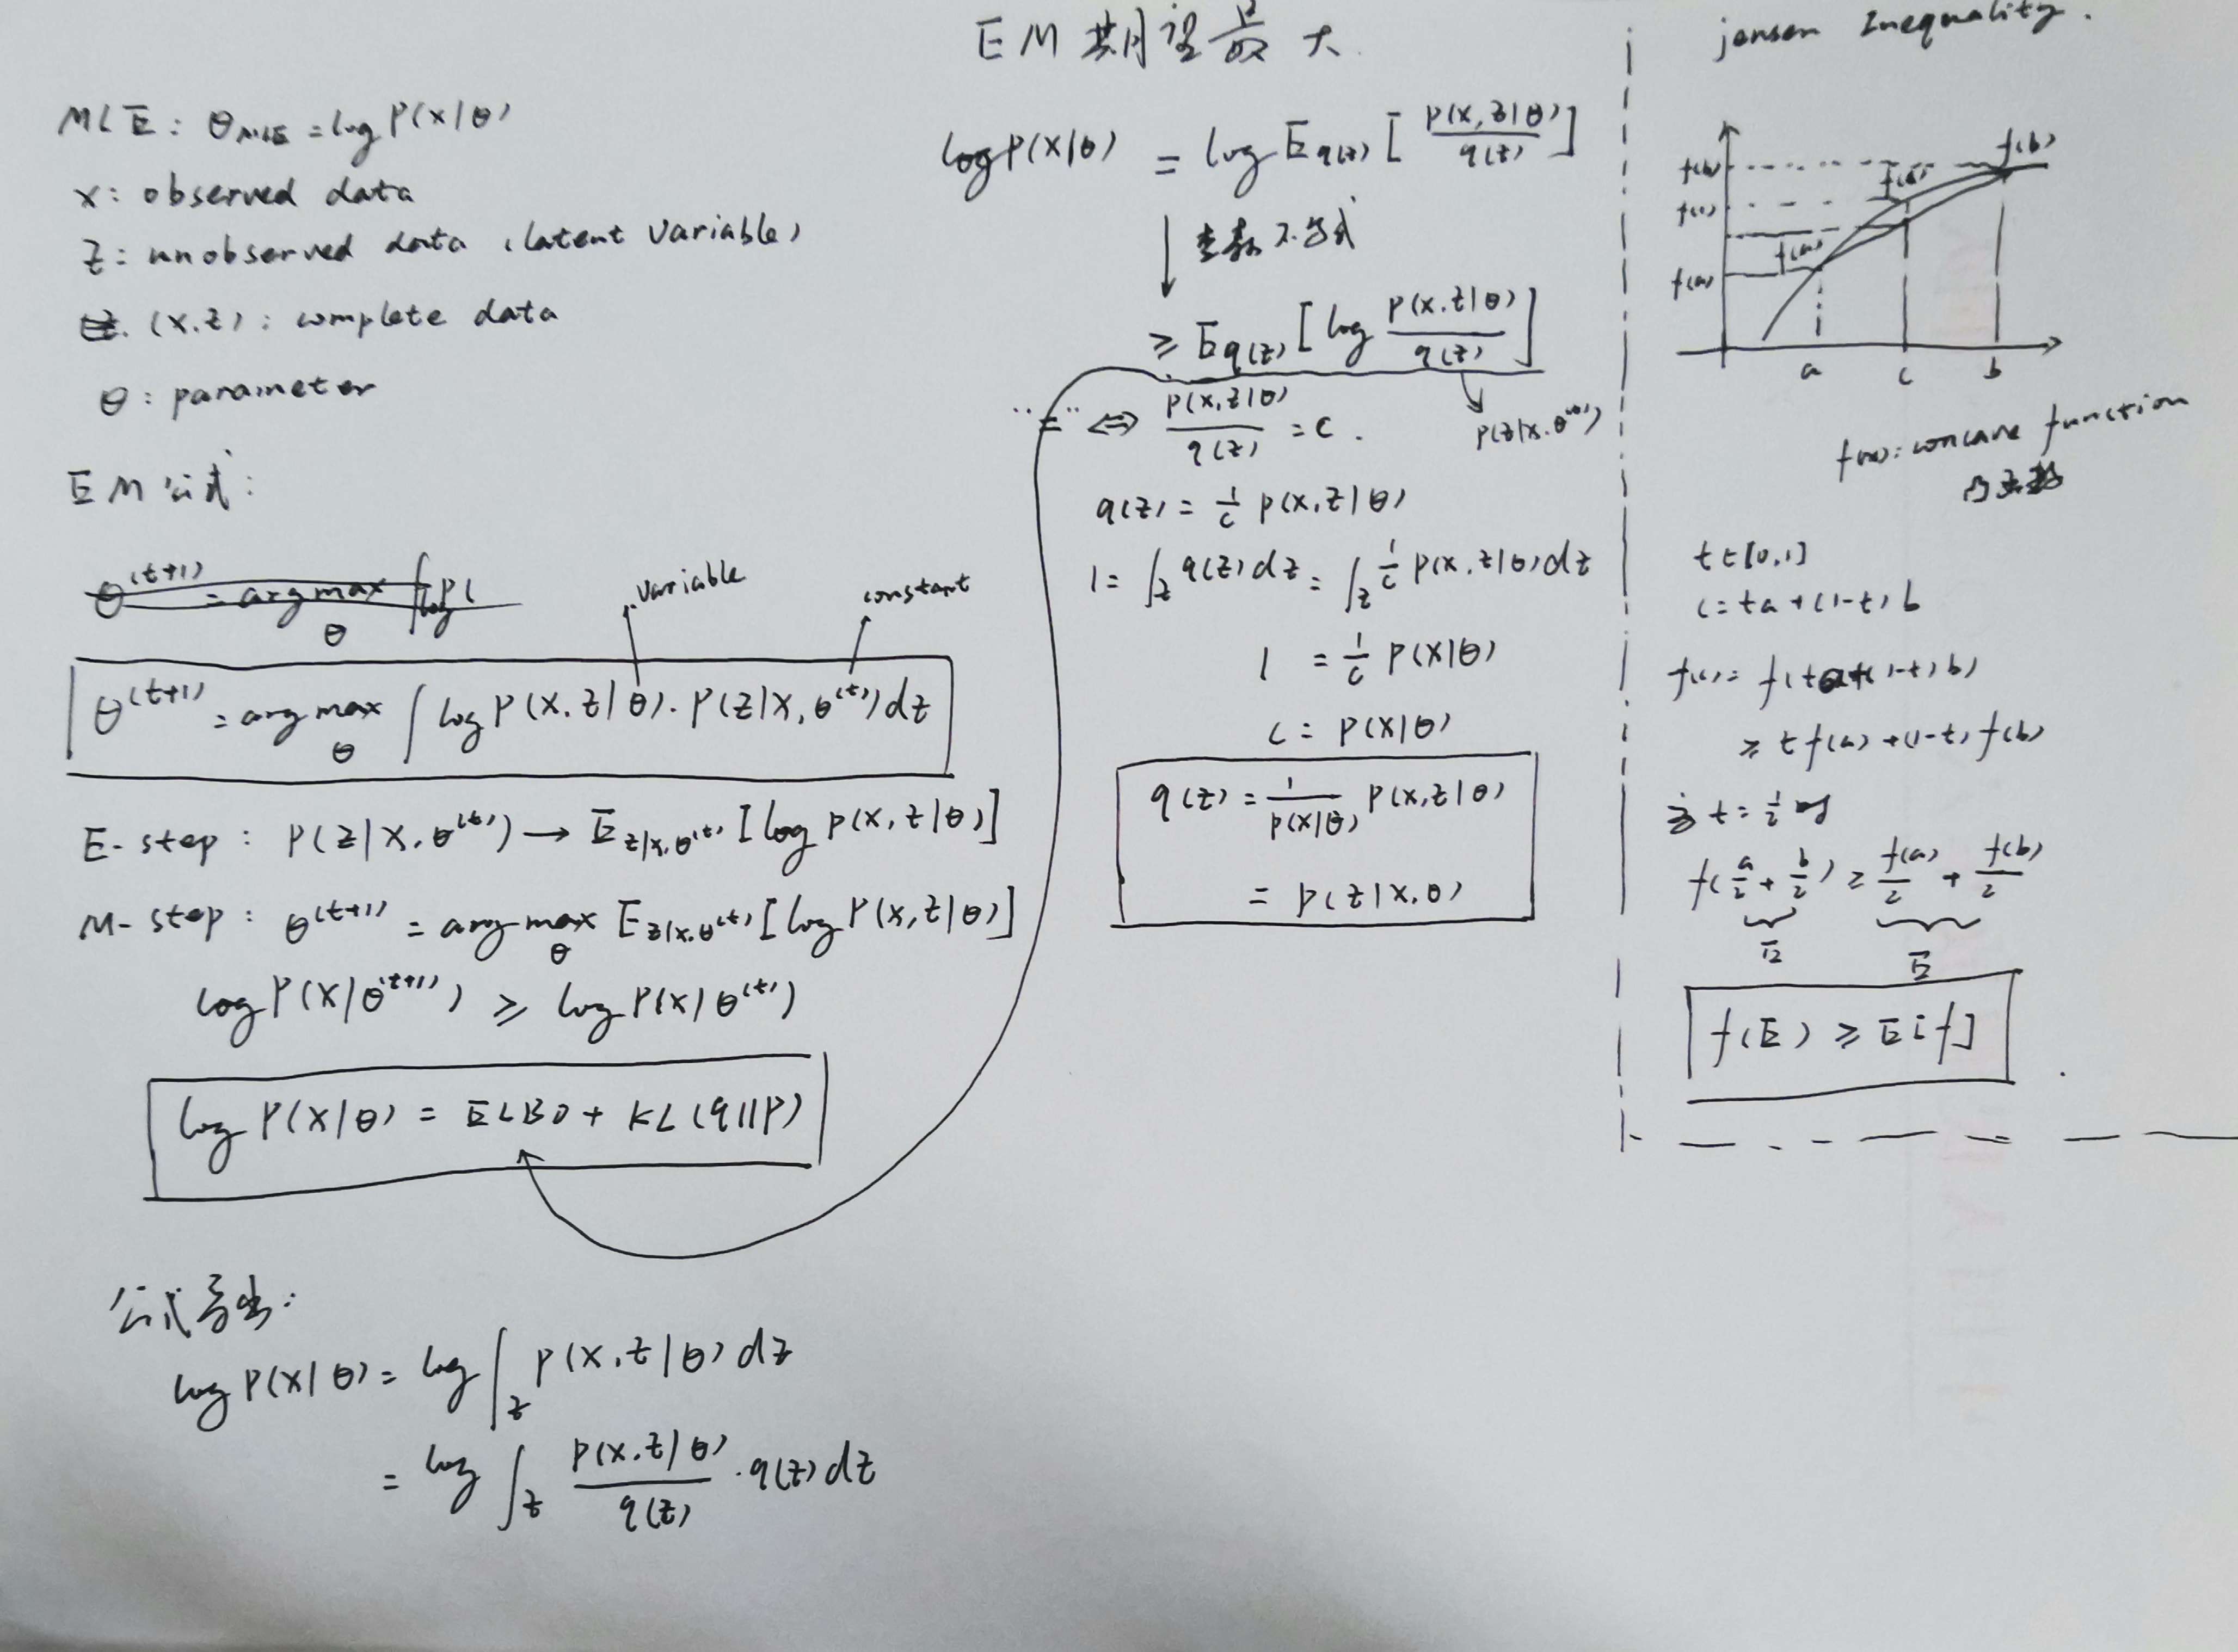 EM 期望最大
MLE: θ_MLE = log P(x|θ)
x: observed data
z: unobserved data (latent variable)
(x.z): complete data
θ: parameter
EM公式:
θ^(t+1) = argmax_θ ∫ log P(
variable
constant
θ^(t+1) = argmax_θ ∫ log P(x.z|θ)·P(z|x,θ^(t)) dz
E-step: P(z|x.θ^(t)) → E_z|x.θ^(t) [log P(x,z|θ)]
M-step: θ^(t+1) = argmax_θ E_z|x.θ^(t) [log P(x,z|θ)]
log P(x|θ^(t+1)) ≥ log P(x|θ^(t))
log P(x|θ) = ELBO + KL(q||P)
公式导出:
log P(x|θ) = log ∫_z P(x.z|θ) dz
= log ∫_z P(x.z|θ)/q(z) · q(z) dz
log P(x|θ) = log E_q(z) [P(x,z|θ)/q(z)]
不等式
≥ E_q(z) [log P(x.z|θ)/q(z)]
"=" ⇔ P(x,z|θ)/q(z) = C.
P(z|x.θ^(t))
q(z) = 1/C P(x,z|θ)
1 = ∫_z q(z) dz = ∫_z 1/C P(x.z|θ) dz
1 = 1/C P(x|θ)
C = P(x|θ)
q(z) = 1/P(x|θ) P(x,z|θ)
= P(z|x.θ)
jensen Inequality.
f(b)
f(b)
f(c)
f(c)
f(a)
f(a)
a c b
f(x): concave function
t∈[0,1]
c = ta + (1-t) b
f(c) = f(ta+(1-t)b)
≥ t f(a) + (1-t) f(b)
t = 1/2 时
f(a/2 + b/2) ≥ f(a)/2 + f(b)/2
E
E
f(E) ≥ E[f]